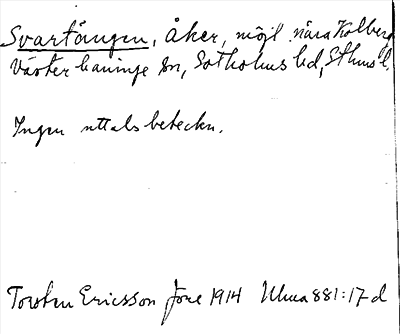 Svartängen, åker, möjl. nära Kolberg
Västerhaninge sn, Sotholms hd, Sthms l.
Ingen uttalsbeteckn.
Torsten Ericsson fone 1914 Ulma 881:17 d